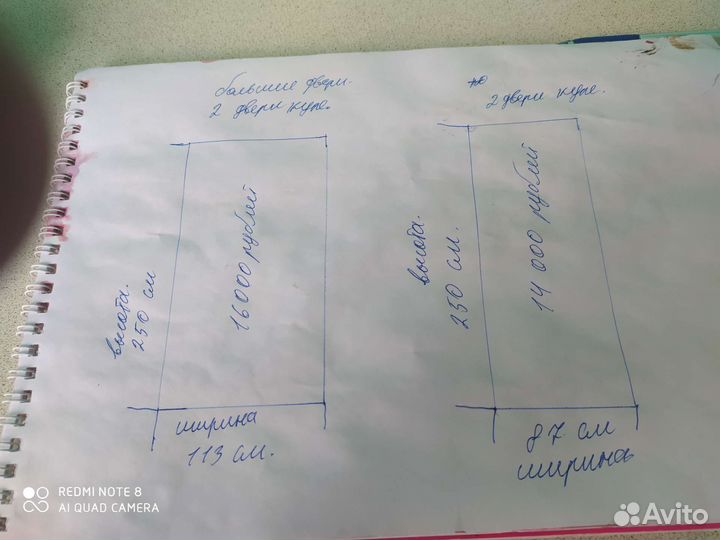 большие двери.
2 двери купе.
высота.
250 см
16000 рублей
ширина
113 см.
по
2 двери купе.
высота.
250 см.
14 000 рублей
87 см
ширина
REDMI NOTE 8
AI QUAD CAMERA
Avito